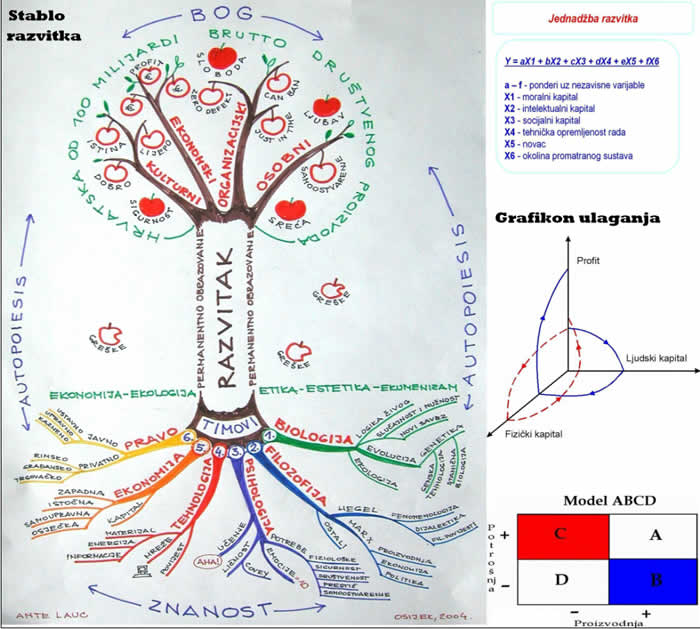 Stablo
razvitka
BOG
HRVATSKA OD 100 MILIJARDI BRUTTO DRUŠTVENOG PROIZVODA
PROFIT
€
€
€
SLOBODA
ZERO DEFEKT
CAN BAN
JUST IN TIME
LJUBAV
SAMOOSTVARENJE
SREĆA
ISTINA
LIJEPO
DOBRO
SIGURNOST
KULTURNI
EKONOMSKI
ORGANIZACIJSKI
OSOBNI
AUTOPOIESIS
AUTOPOIESIS
PERMANENTNO OBRAZOVANJE
RAZVITAK
PERMANENTNO OBRAZOVANJE
GREŠKE
GREŠKE
GREŠKE
EKONOMIJA-EKOLOGIJA
ETIKA-ESTETIKA-EKUMENIZAM
TIMOVI
6.
5.
4.
3.
2.
1.
PRAVO
JAVNO
USTAVNO
UPRAVNO
KAZNENO
PRIVATNO
RIMSKO
GRAĐANSKO
TRGOVAČKO
EKONOMIJA
ZAPADNA
ISTOČNA
SAMOUPRAVNA
OSJEČKA
KAPITAL
TEHNOLOGIJA
MATERIJAL
ENERGIJA
INFORMACIJE
MREŽE
POVIJEST
PSIHOLOGIJA
UČENJE
AHA!
LIČNOST
COVEY
EMOCIJE
POTREBE
FIZIOLOŠKE
SIGURNOST
DRUŠTVENOST
PRESTIŽ
SAMOOSTVARENJE
FILOZOFIJA
HEGEL
FENOMENOLOGIJA
DIJALEKTIKA
FIL. POVIJESTI
MARX
PROIZVODNJA
EKONOMIJA
POLITIKA
OSTALI
BIOLOGIJA
LOGIKA ŽIVOG
SLUČAJNOST I NUŽNOST
NOVI SAVEZ
EVOLUCIJA
EKOLOGIJA
GENETIKA
GENSKA TEHNOLOGIJA
STANIČNA BIOLOGIJA
ZNANOST
ANTE LAUC
OSIJEK, 2004.
Jednadžba razvitka
Y = aX1 + bX2 + cX3 + dX4 + eX5 + fX6
a – f - ponderi uz nezavisne varijable
X1 - moralni kapital
X2 - intelektualni kapital
X3 - socijalni kapital
X4 - tehnička opremljenost rada
X5 - novac
X6 - okolina promatranog sustava
Grafikon ulaganja
Profit
Ljudski kapital
Fizički kapital
Model ABCD
Potrošnja
+
C
A
–
D
B
–
+
Proizvodnja